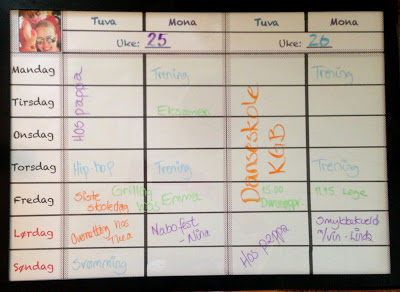 Tuva Mona Tuva Mona
Uke: 25 Uke: 26
Mandag Trening Trening
Hos pappa
Tirsdag Eksamen
Onsdag
Danseskole
KGB
Torsdag Hip-hop Trening Trening
Fredag Siste
skoledag
Grilling
hos Emma
15.00
11.15 Lege
Lørdag Overnatting hos
Thea
Nabofest
- Nina
Hos pappa
Smykkekveld
m/vin - Linda
Søndag Svømming